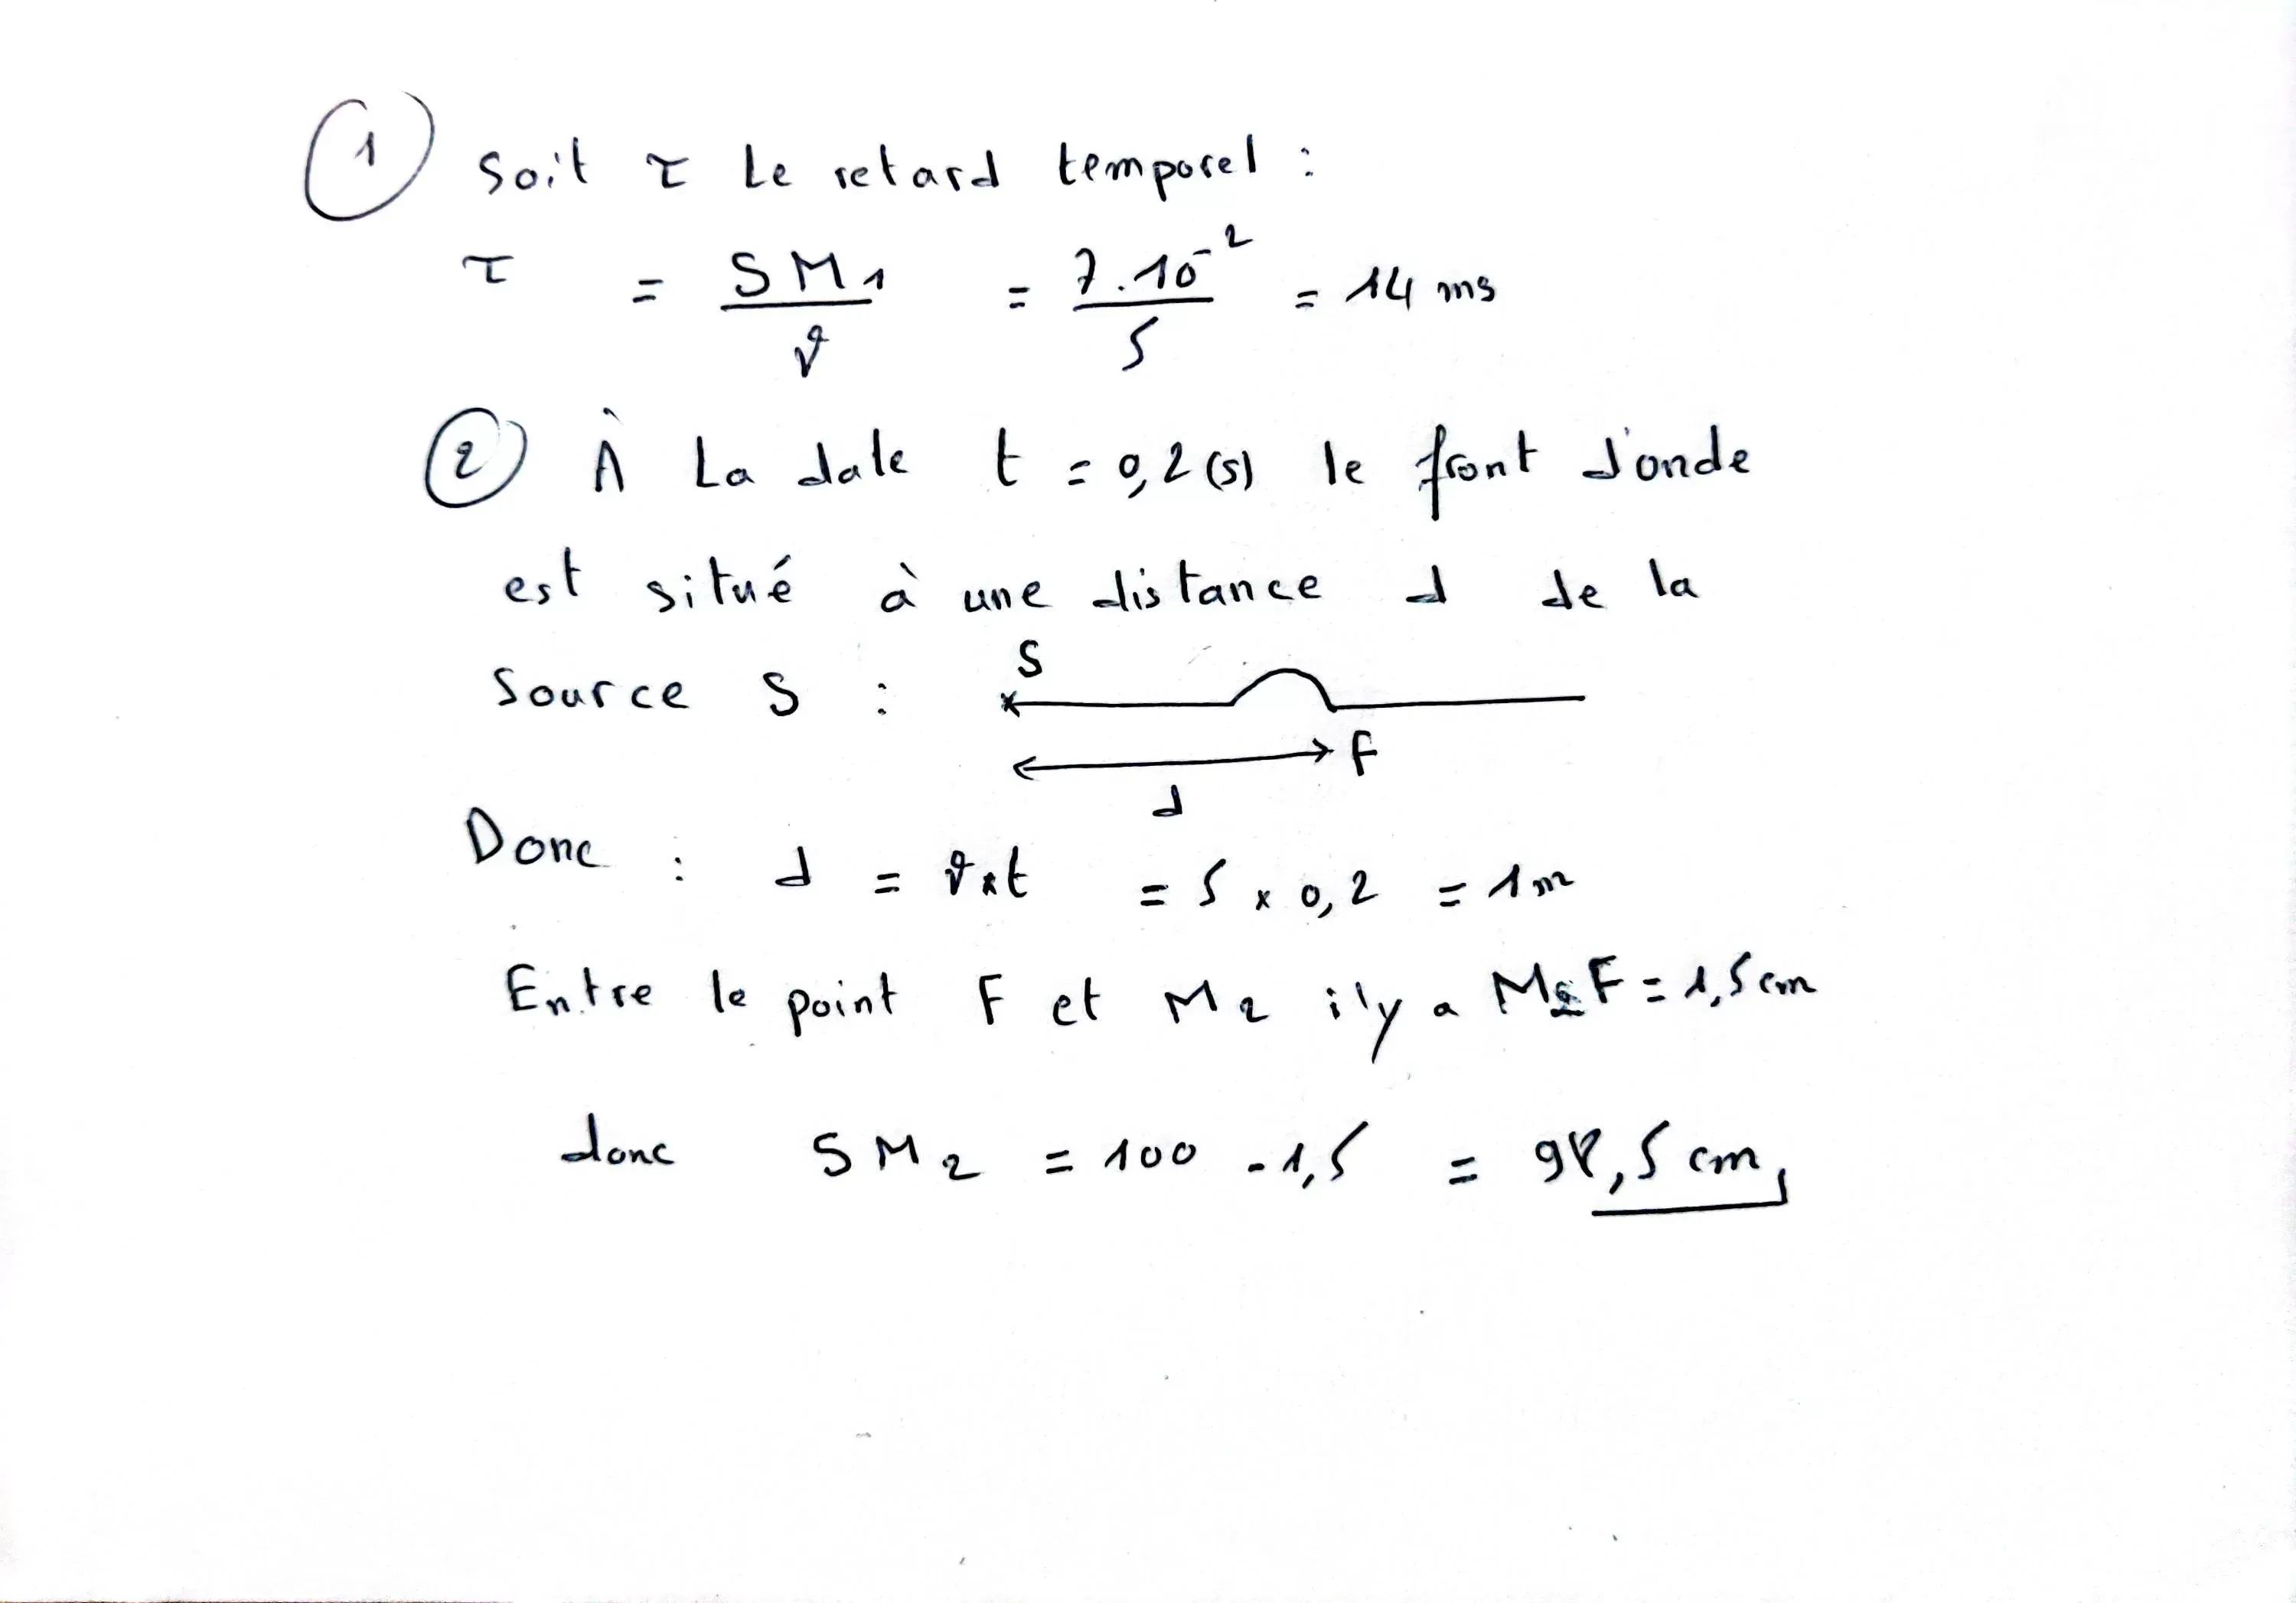 ① Soit τ le retard temporel :
τ = SM₁/v = 7.10⁻²/5 = 14 ms
② À La date t = 0,2(s) le front d'onde
est situé à une distance d de la
Source S :
S
F
d
Donc : d = v×t = 5 × 0,2 = 1m
Entre le point F et M₂ il y a M₂F = 1,5cm
donc SM₂ = 100 - 1,5 = 98,5 cm